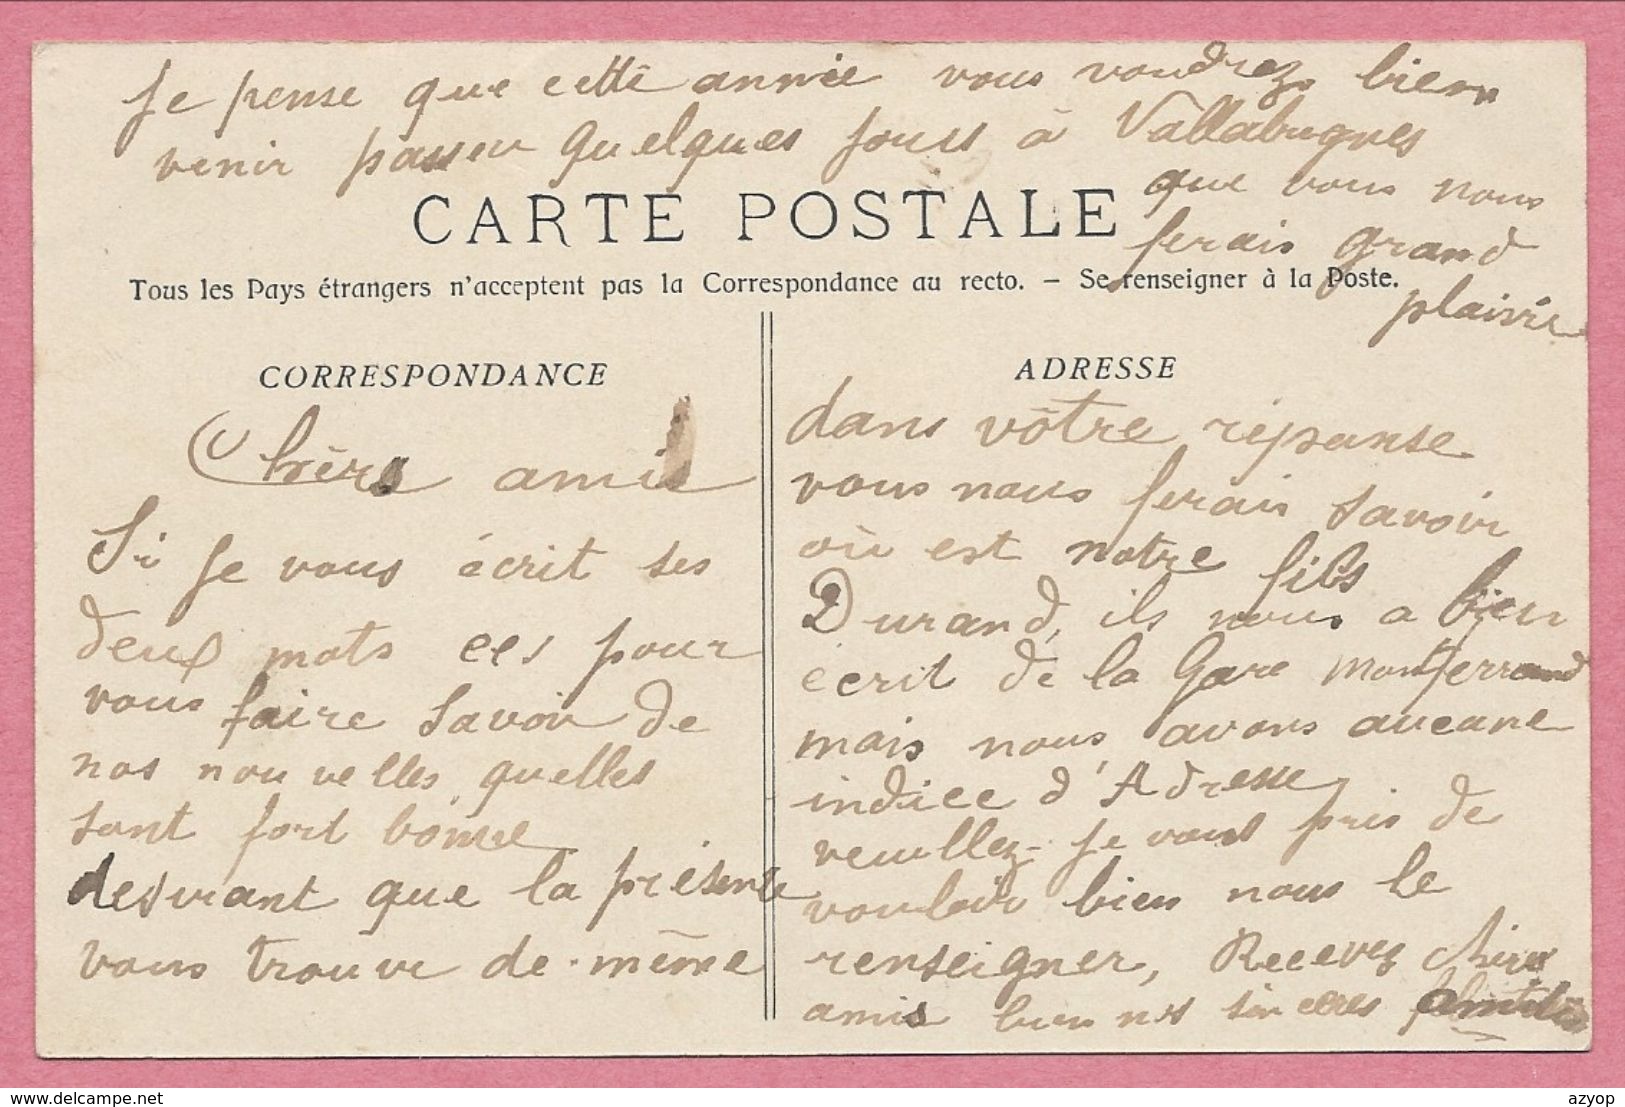 Je pense que cette année vous voudrez bien
venir passer quelques jours à Vallabregues
que vous nous
ferais grand
plaisir
CARTE POSTALE
Tous les Pays étrangers n'acceptent pas la Correspondance au recto. — Se renseigner à la Poste.
CORRESPONDANCE
Chèrs amis
Si Je vous écrit ses
deux mots ces pour
vous faire savoir de
nos nouvelles, quelles
sont fort bonne
desirant que la présente
vous trouve de-même
ADRESSE
dans vôtre réponse
vous nous ferais savoir
où est notre fils
Durand, ils nous a bien
écrit de la Gare Montferrand
mais nous avons aucune
indice d'Adresse
veuillez-Je vous pris de
vouloir bien nous le
renseigner, Recevez chères
amis bien nos sincères
delcampe.net
azyop